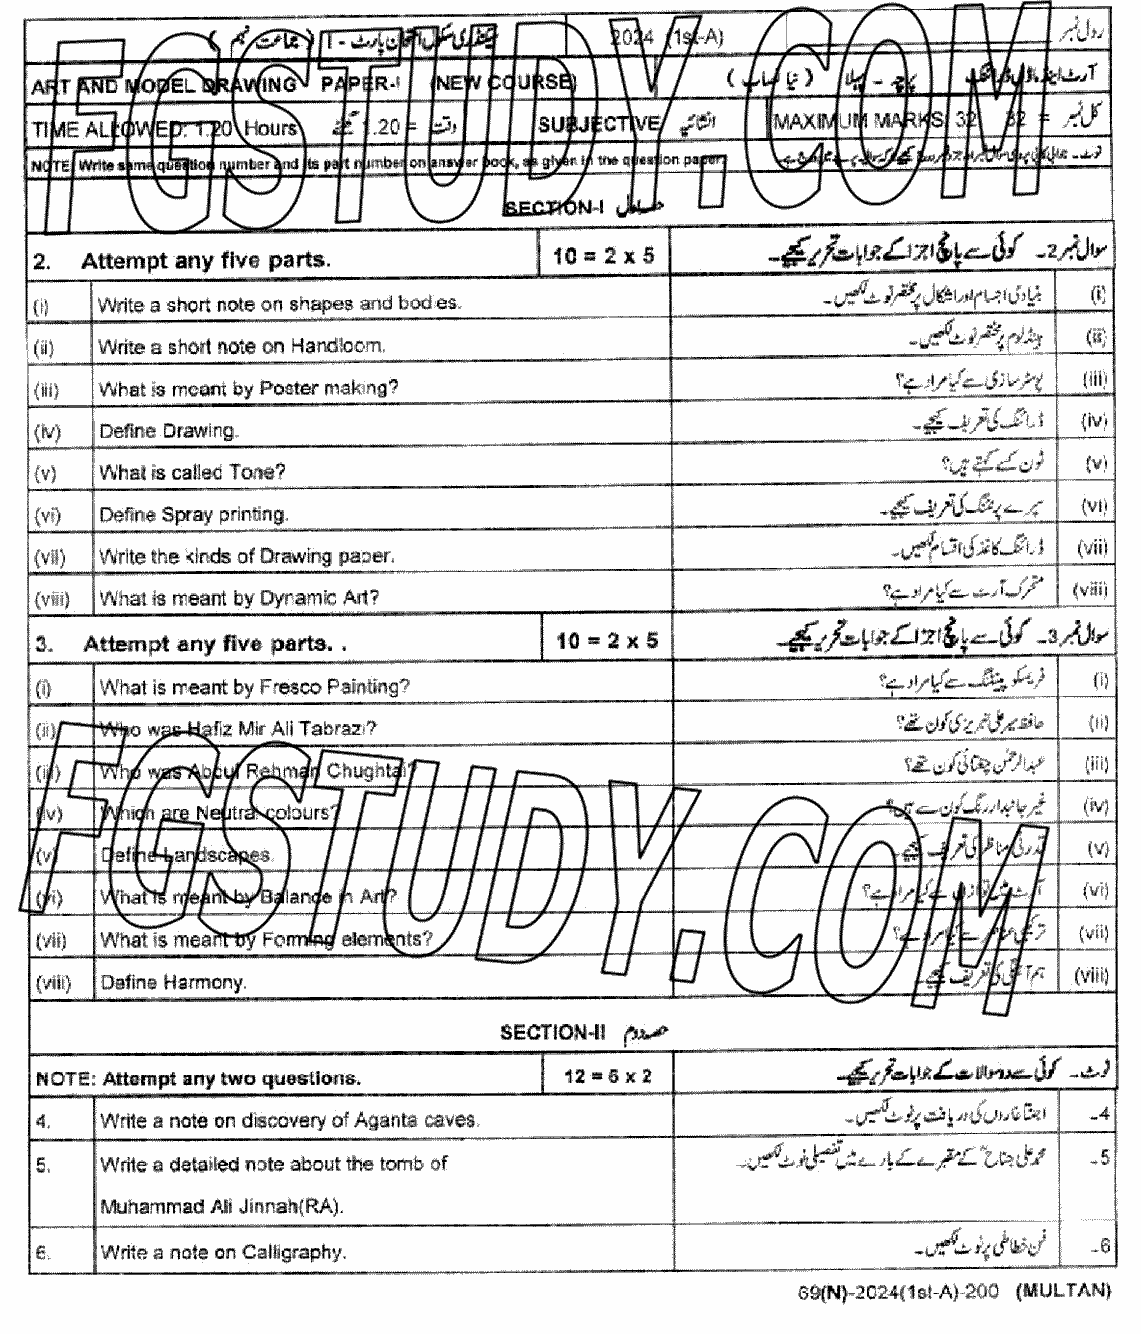 رول نمبر 2024 (1st-A) سیکنڈری سکول امتحان پارٹ - I ( جماعت نہم )
ART AND MODEL DRAWING PAPER-I (NEW COURSE) آرٹ اینڈ ماڈل ڈرائنگ پرچہ - پہلا ( نیا نصاب )
TIME ALLOWED: 1.20 Hours وقت = 1.20 گھنٹے SUBJECTIVE انشائیہ MAXIMUM MARKS 32 کل نمبر = 32
NOTE: Write same question number and its part number on answer book, as given in the question paper.
SECTION-I حصہ اول
2. Attempt any five parts. 10 = 2 x 5 سوال نمبر 2۔ کوئی سے پانچ اجزا کے جوابات تحریر کیجیے۔
(i) Write a short note on shapes and bodies. بنیادی اجسام اور اشکال پر مختصر نوٹ لکھیں۔ (i)
(ii) Write a short note on Handloom. ہینڈلوم پر مختصر نوٹ لکھیں۔ (ii)
(iii) What is meant by Poster making? پوسٹر سازی سے کیا مراد ہے؟ (iii)
(iv) Define Drawing. ڈرائنگ کی تعریف کیجیے۔ (iv)
(v) What is called Tone? ٹون کسے کہتے ہیں؟ (v)
(vi) Define Spray printing. سپرے پرنٹنگ کی تعریف کیجیے۔ (vi)
(vii) Write the kinds of Drawing paper. ڈرائنگ کاغذ کی اقسام لکھیں۔ (vii)
(viii) What is meant by Dynamic Art? متحرک آرٹ سے کیا مراد ہے؟ (viii)
3. Attempt any five parts. . 10 = 2 x 5 سوال نمبر 3۔ کوئی سے پانچ اجزا کے جوابات تحریر کیجیے۔
(i) What is meant by Fresco Painting? فریسکو پینٹنگ سے کیا مراد ہے؟ (i)
(ii) Who was Hafiz Mir Ali Tabrazi? حافظ میر علی تبریزی کون تھے؟ (ii)
(iii) Who was Abdul Rehman Chughtai? عبدالرحمٰن چغتائی کون تھے؟ (iii)
(iv) Which are Neutral colours? غیر جانبدار رنگ کون سے ہیں؟ (iv)
(v) Define Landscapes. قدرتی مناظر کی تعریف کیجیے۔ (v)
(vi) What is meant by Balance in Art? آرٹ میں توازن سے کیا مراد ہے؟ (vi)
(vii) What is meant by Forming elements? ترکیبی عناصر سے کیا مراد ہے؟ (vii)
(viii) Define Harmony. ہم آہنگی کی تعریف کیجیے۔ (viii)
SECTION-II حصہ دوم
NOTE: Attempt any two questions. 12 = 6 x 2 نوٹ۔ کوئی سے دو سوالات کے جوابات تحریر کیجیے۔
4. Write a note on discovery of Aganta caves. اجنتا غاروں کی دریافت پر نوٹ لکھیں۔ 4۔
5. Write a detailed note about the tomb of محمد علی جناحؒ کے مقبرے کے بارے میں تفصیلی نوٹ لکھیں۔ 5۔
Muhammad Ali Jinnah(RA).
6. Write a note on Calligraphy. فن خطاطی پر نوٹ لکھیں۔ 6۔
69(N)-2024(1st-A)-200 (MULTAN)
FGSTUDY.COM
FGSTUDY.COM